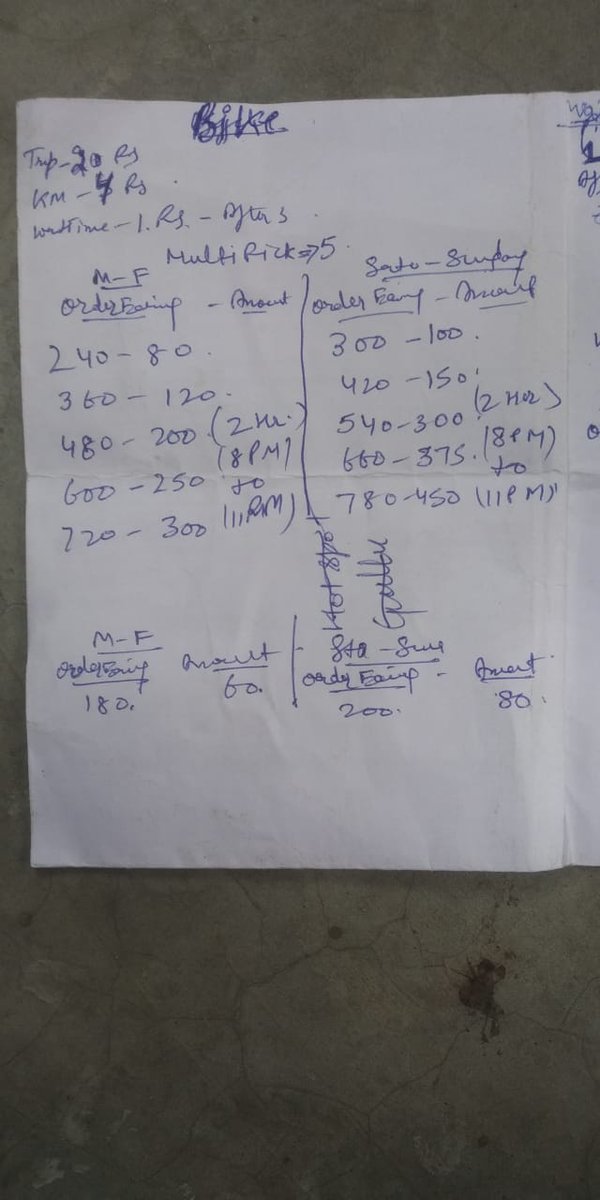 Bike
Trip - 20 Rs
KM - 4 Rs
waitTime - 1. Rs. - After 3
MultiPick => 5
M-F
Order Earing - Amount
240 - 80.
360 - 120.
480 - 200 (2 Hr.)
(8PM)
600 - 250 to
720 - 300 11PM)
Satu - Sunday
Order Earing - Amount
300 - 100.
420 - 150
540 - 300 (2 Hr)
660 - 375. (8PM)
to
780 - 450 (11PM)
Hotspot
M-F
Order Earing Amount
180. 60.
Sta - Sun
Order Earing - Amount
200. 80.